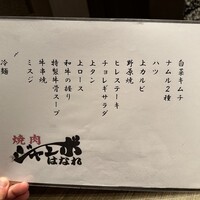 白菜キムチ
ナムル2種
ハツ
上カルビ
野原焼
ヒレステーキ
チョレギサラダ
上タン
上ロース
和牛の握り
特製牛骨スープ
牛串焼
ミスジ
冷麺
焼肉
ジャンボ
はなれ